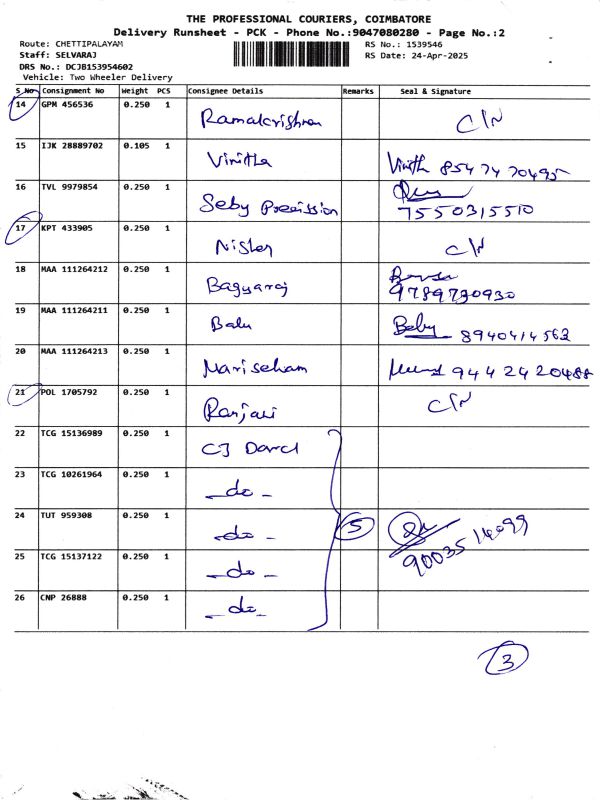 THE PROFESSIONAL COURIERS, COIMBATORE
Delivery Runsheet - PCK - Phone No.:9047080280 - Page No.:2
Route: CHETTIPALAYAM
Staff: SELVARAJ
DRS No.: DCJB153954602
Vehicle: Two Wheeler Delivery
RS No.: 1539546
RS Date: 24-Apr-2025
S_No Consignment No Weight PCS Consignee Details Remarks Seal & Signature
14 GPM 456536 0.250 1 Ramakrishnan C/N
15 IJK 28889702 0.105 1 Vinitha Vinith 8547470495
16 TVL 9979854 0.250 1 Seby Precission 7550315510
17 KPT 433905 0.250 1 C/N
18 MAA 111264212 0.250 1 Bagyaraj 9789730930
19 MAA 111264211 0.250 1 Balu Beby 8940414563
20 MAA 111264213 0.250 1 9442420488
21 POL 1705792 0.250 1 Ranjani C/N
22 TCG 15136989 0.250 1 CJ
23 TCG 10261964 0.250 1 -do-
24 TUT 959308 0.250 1 -do- 5 9003514099
25 TCG 15137122 0.250 1 -do-
26 CNP 26888 0.250 1 -do-
3